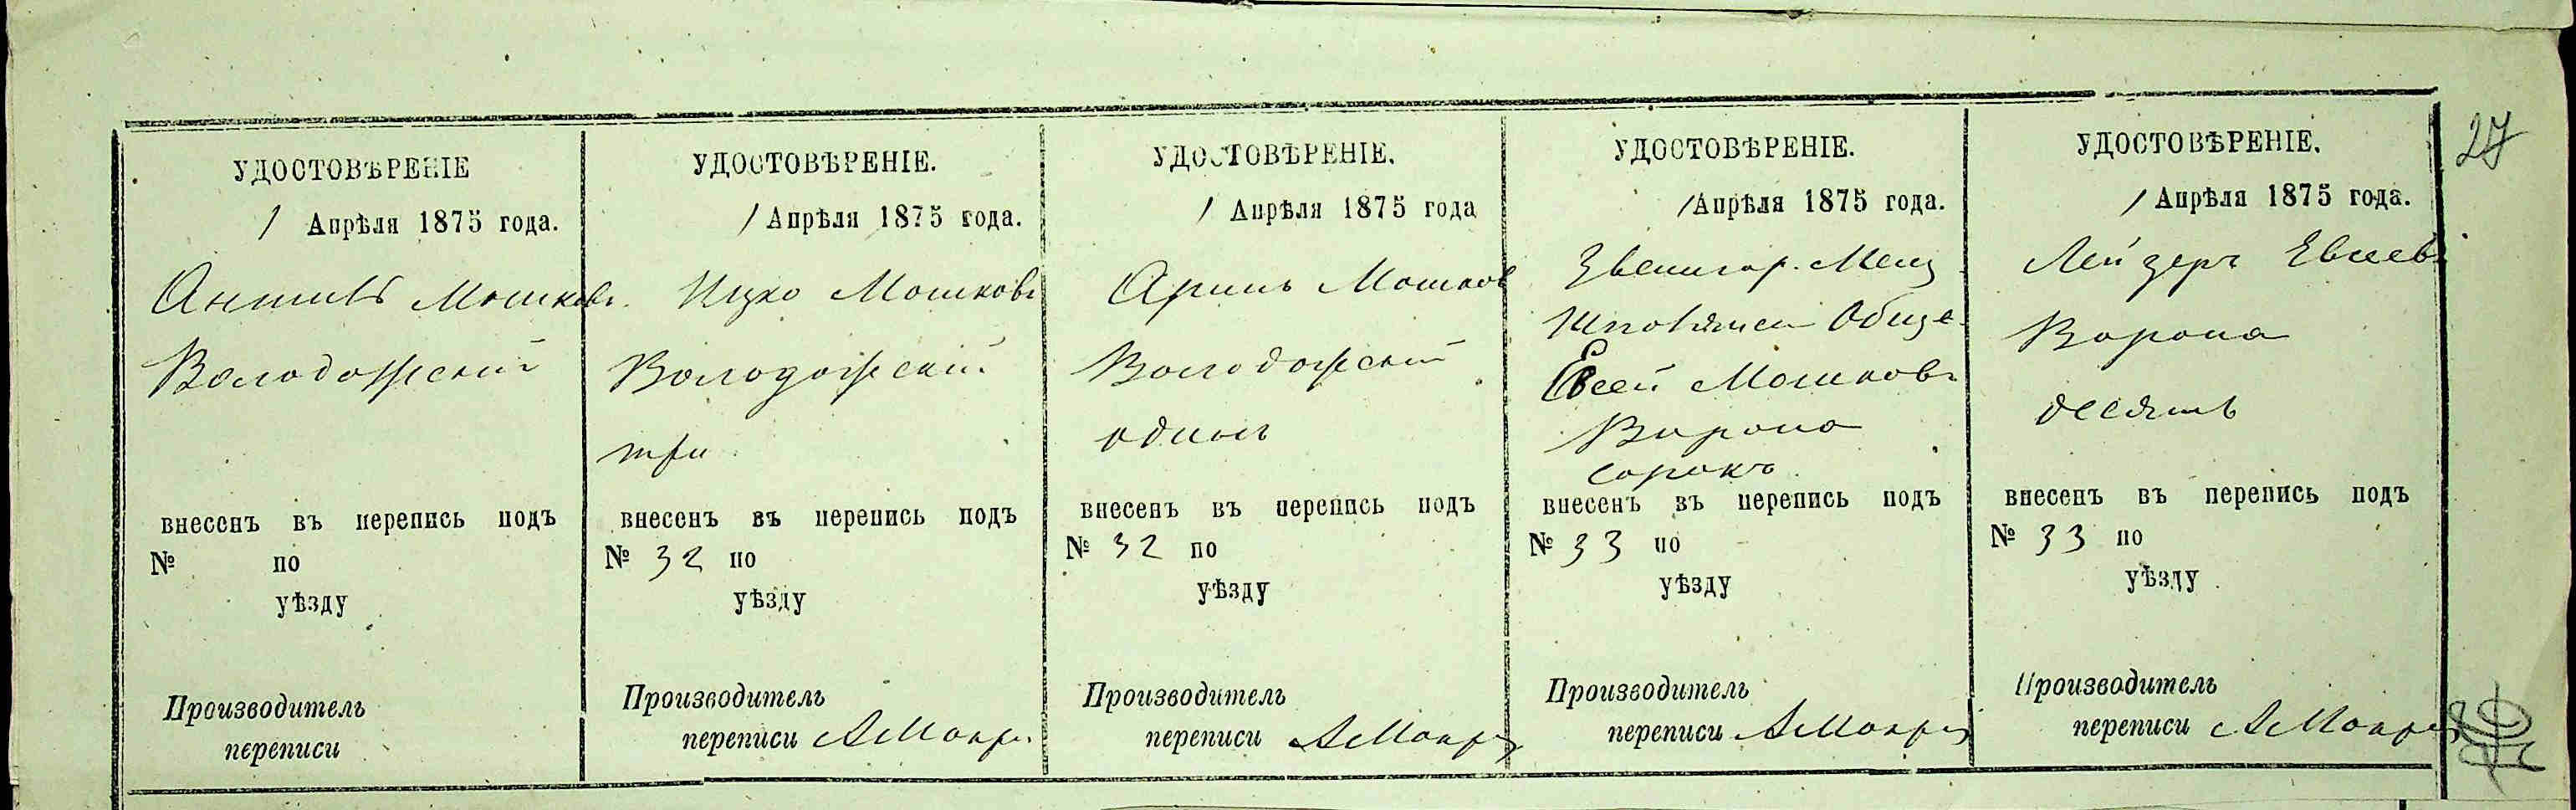 27
УДОСТОВѢРЕНІЕ
1 Апрѣля 1875 года.
Мошковъ
Володарскій
внесенъ въ перепись подъ
№ по
уѣзду
Производитель
переписи
УДОСТОВѢРЕНІЕ.
1 Апрѣля 1875 года.
Ицко Мошковъ
Володарскій
три
внесенъ въ перепись подъ
№ 32 по
уѣзду
Производитель
переписи
УДОСТОВѢРЕНІЕ.
1 Апрѣля 1875 года
Мошков
Володарскій
одинъ
внесенъ въ перепись подъ
№ 32 по
уѣзду
Производитель
переписи
УДОСТОВѢРЕНІЕ.
1 Апрѣля 1875 года.
Звенигор. Мещ
Обще
Евсей Мошковъ
Ворона
сорокъ
внесенъ въ перепись подъ
№ 33 по
уѣзду
Производитель
переписи
УДОСТОВѢРЕНІЕ.
1 Апрѣля 1875 года.
Лейзеръ Евсеевъ
Ворона
десять
внесенъ въ перепись подъ
№ 33 по
уѣзду
Производитель
переписи